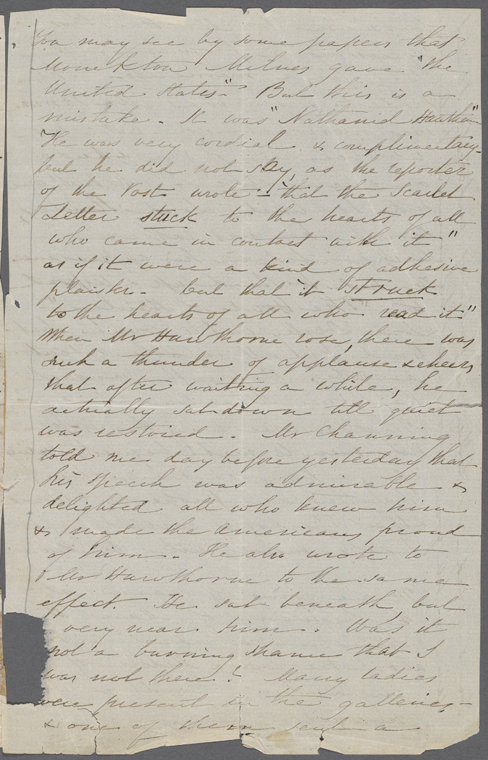 You may see by some papers that
Monckton Milnes gave "the
United States." But this is a
mistake. It was "Nathaniel Hawthorne"
He was very cordial & complimentary-
but he did not say, as the reporter
of the Post wrote - "that the Scarlet
Letter stuck to the hearts of all
who came in contact with it"
as if it were a kind of adhesive
plaister - but that "it struck
to the hearts of all who read it"
When Mr Hawthorne rose, there was
such a thunder of applause & cheers,
that after waiting a while, he
actually sat down till quiet
was restored. Mr Channing
told me day before yesterday that
his speech was admirable &
delighted all who knew him
& made the Americans proud
of him. He also wrote to
Mr Hawthorne to the same
effect. He sat beneath, but
very near him. Was it
not a burning shame that I
was not there! Many ladies
were present in the galleries -
& one of them sent a